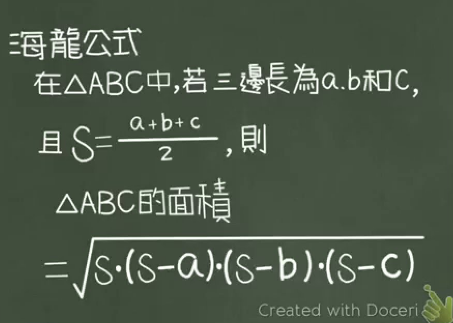 海龍公式
在△ABC中,若三邊長為a.b和c,
且 S=(a+b+c)/2 ,則
△ABC的面積
=√(S·(S-a)·(S-b)·(S-c))
Created with Doceri